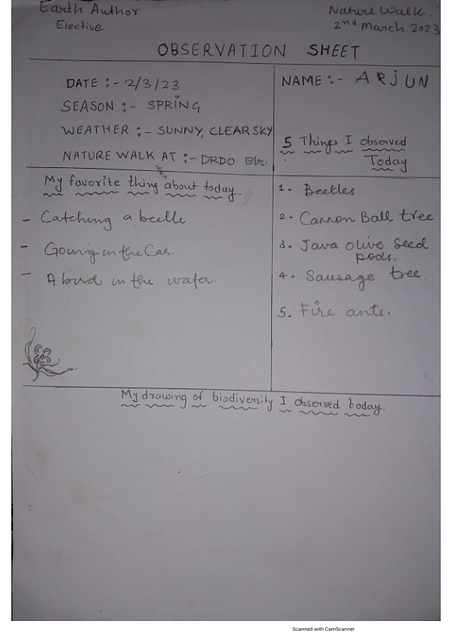 Earth Author
Elective.
Nature Walk.
2nd March 2023
OBSERVATION SHEET
DATE :- 2/3/23
SEASON :- SPRING
WEATHER :- SUNNY, CLEAR SKY
NATURE WALK AT :- DRDO
NAME :- ARJUN
5 Things I observed
Today
My favorite thing about today.
- Catching a beetle.
- Going in the Car.
- A bird in the water
1. Beetles
2. Cannon Ball tree
3. Java olive seed
pods.
4. Sausage tree.
5. Fire ants.
My drawing of biodiversity I observed today.
Scanned with CamScanner